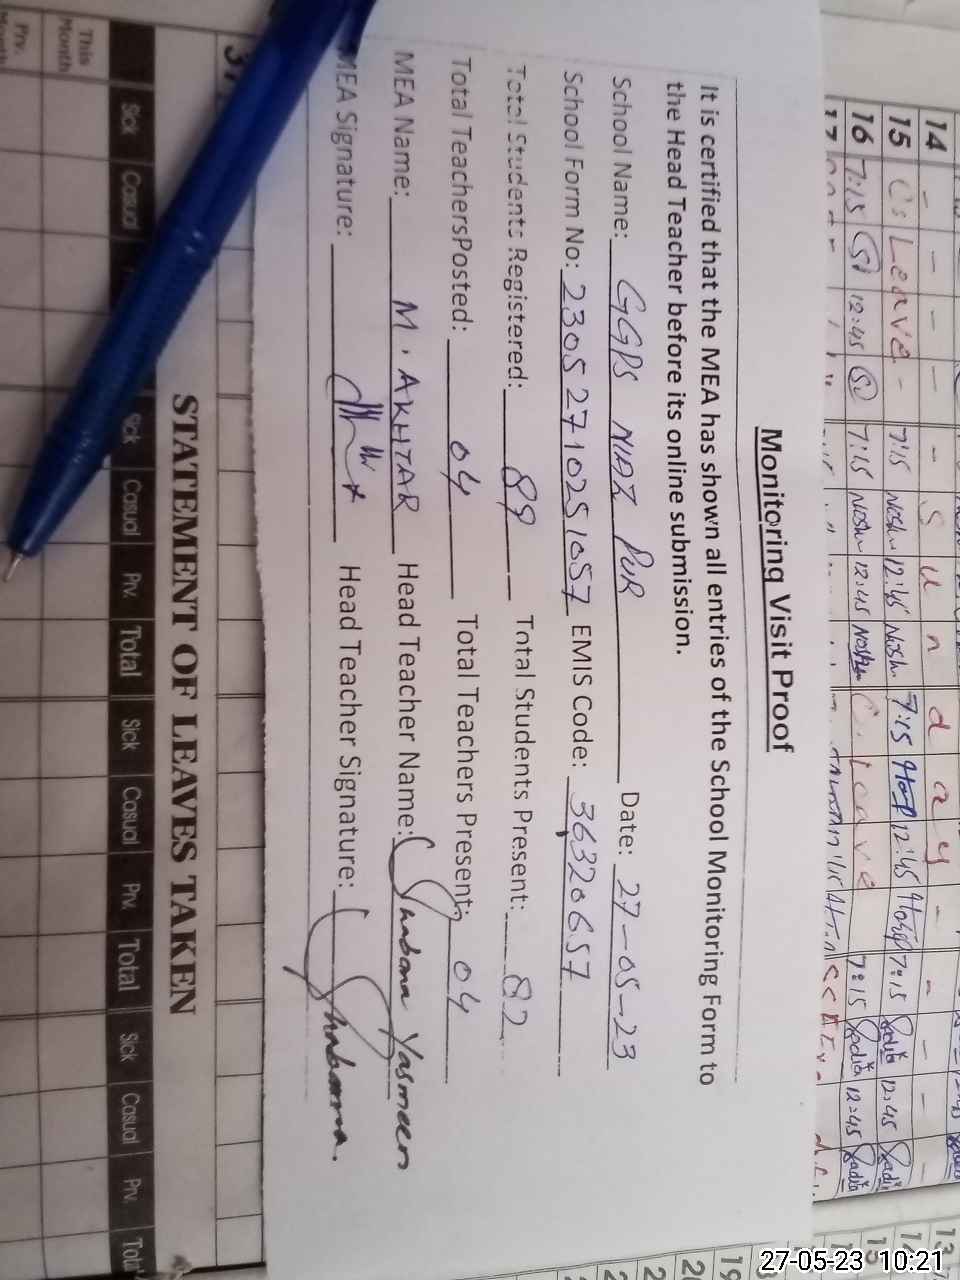 Monitoring Visit Proof
It is certified that the MEA has shown all entries of the School Monitoring Form to
the Head Teacher before its online submission.
School Name: GGPS NIAZ PUR Date: 27-05-23
School Form No: 23052710251057 EMIS Code: 36320657
Total Students Registered: 89 Total Students Present: 82
Total TeachersPosted: 04 Total Teachers Present: 04
MEA Name: M. AKHTAR Head Teacher Name: Shabana Yasmeen
MEA Signature: Head Teacher Signature: Shabana.
14 - - - - - S u n d a y - - - -
15 C: Leave - 7:15 12:45 7:15 12:45 7:15 Sadia 12:45 Sadia
16 7:15 12:45 7:15 12:45 C. Leave 7:15 Sadia 12:45 Sadia
17
STATEMENT OF LEAVES TAKEN
Sick Casual Sick Casual Prv. Total Sick Casual Prv. Total Sick Casual Prv. Total
This Month
Prv. Month
37
13
15
16
19
27-05-23 10:21